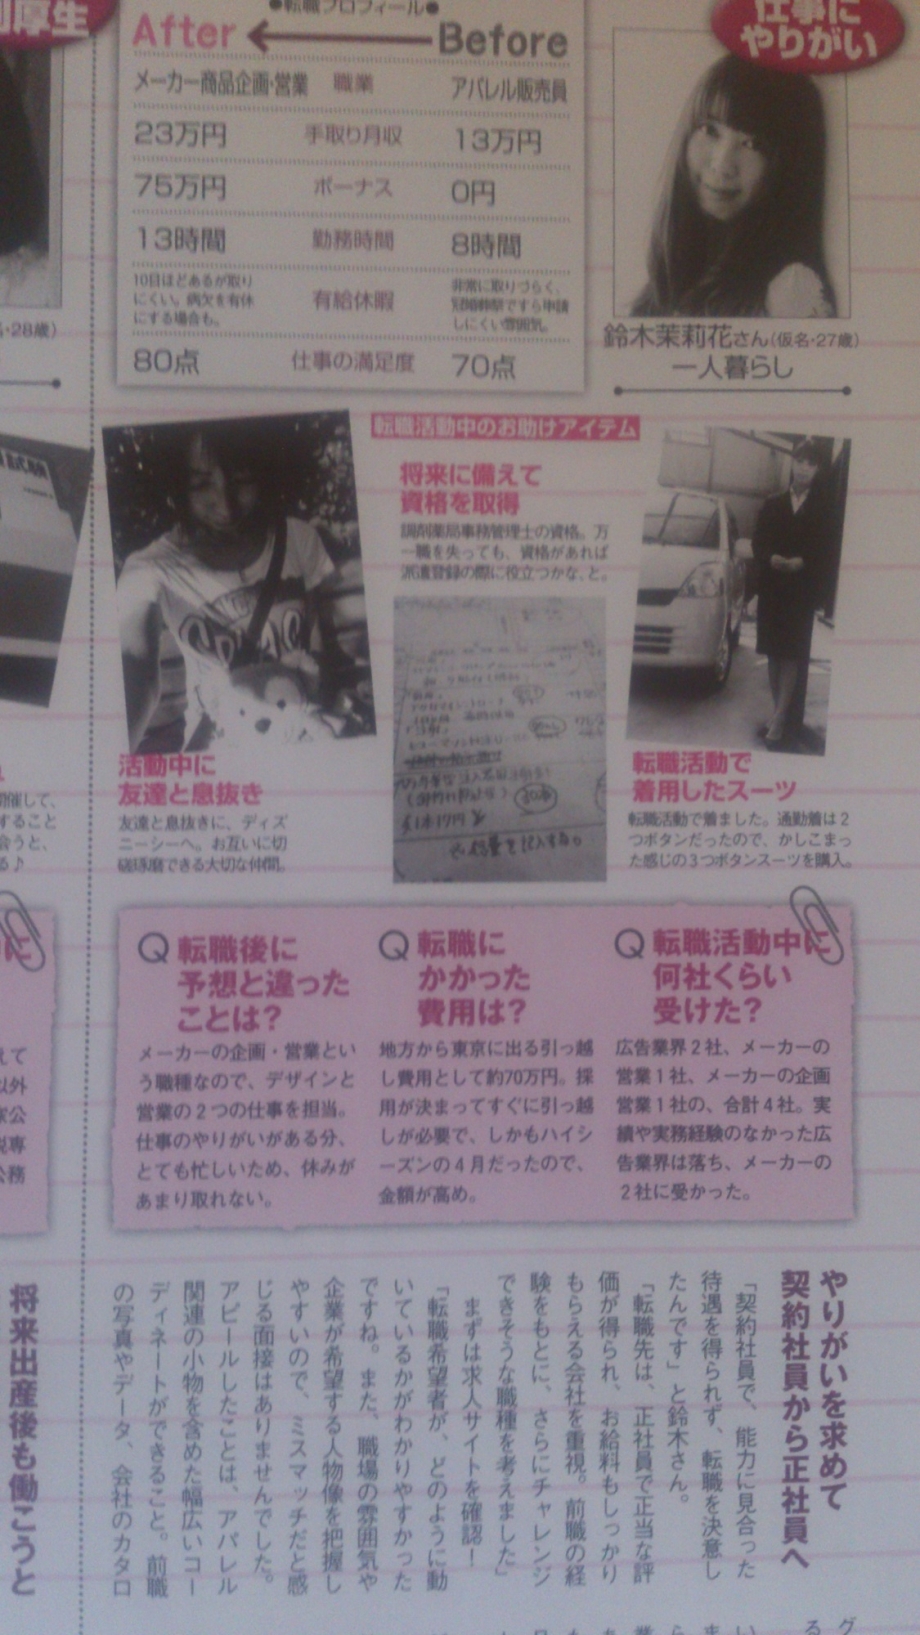 仕事に
やりがい
鈴木茉莉花さん(仮名・27歳)
一人暮らし
●転職プロフィール●
After Before
メーカー商品企画・営業 職業 アパレル販売員
23万円 手取り月収 13万円
75万円 ボーナス 0円
13時間 勤務時間 8時間
10日ほどあるが取り
にくい。病欠を有休
にする場合も。
有給休暇
非常に取りづらく、
冠婚葬祭ですら申請
しにくい雰囲気。
80点 仕事の満足度 70点
転職活動中のお助けアイテム
転職活動で
着用したスーツ
転職活動で着ました。通勤着は2
つボタンだったので、かしこまっ
た感じの3つボタンスーツを購入。
将来に備えて
資格を取得
調剤薬局事務管理士の資格。万
一職を失っても、資格があれば
派遣登録の際に役立つかな、と。
活動中に
友達と息抜き
友達と息抜きに、ディズ
ニーシーへ。お互いに切
磋琢磨できる大切な仲間。
Q 転職活動中に
何社くらい
受けた?
広告業界2社、メーカーの
営業1社、メーカーの企画
営業1社の、合計4社。実
績や実務経験のなかった広
告業界は落ち、メーカーの
2社に受かった。
Q 転職に
かかった
費用は?
地方から東京に出る引っ越
し費用として約70万円。採
用が決まってすぐに引っ越
しが必要で、しかもハイシ
ーズンの4月だったので、
金額が高め。
Q 転職後に
予想と違った
ことは?
メーカーの企画・営業とい
う職種なので、デザインと
営業の2つの仕事を担当。
仕事のやりがいがある分、
とても忙しいため、休みが
あまり取れない。
やりがいを求めて
契約社員から正社員へ
「契約社員で、能力に見合った
待遇を得られず、転職を決意し
たんです」と鈴木さん。
「転職先は、正社員で正当な評
価が得られ、お給料もしっかり
もらえる会社を重視。前職の経
験をもとに、さらにチャレンジ
できそうな職種を考えました」
まずは求人サイトを確認!
「転職希望者が、どのように動
いているかがわかりやすかった
ですね。また、職場の雰囲気や
企業が希望する人物像を把握し
やすいので、ミスマッチだと感
じる面接はありませんでした。
アピールしたことは、アパレル
関連の小物を含めた幅広いコー
ディネートができること。前職
の写真やデータ、会社のカタロ
厚生
・28歳)
将来出産後も働こうと